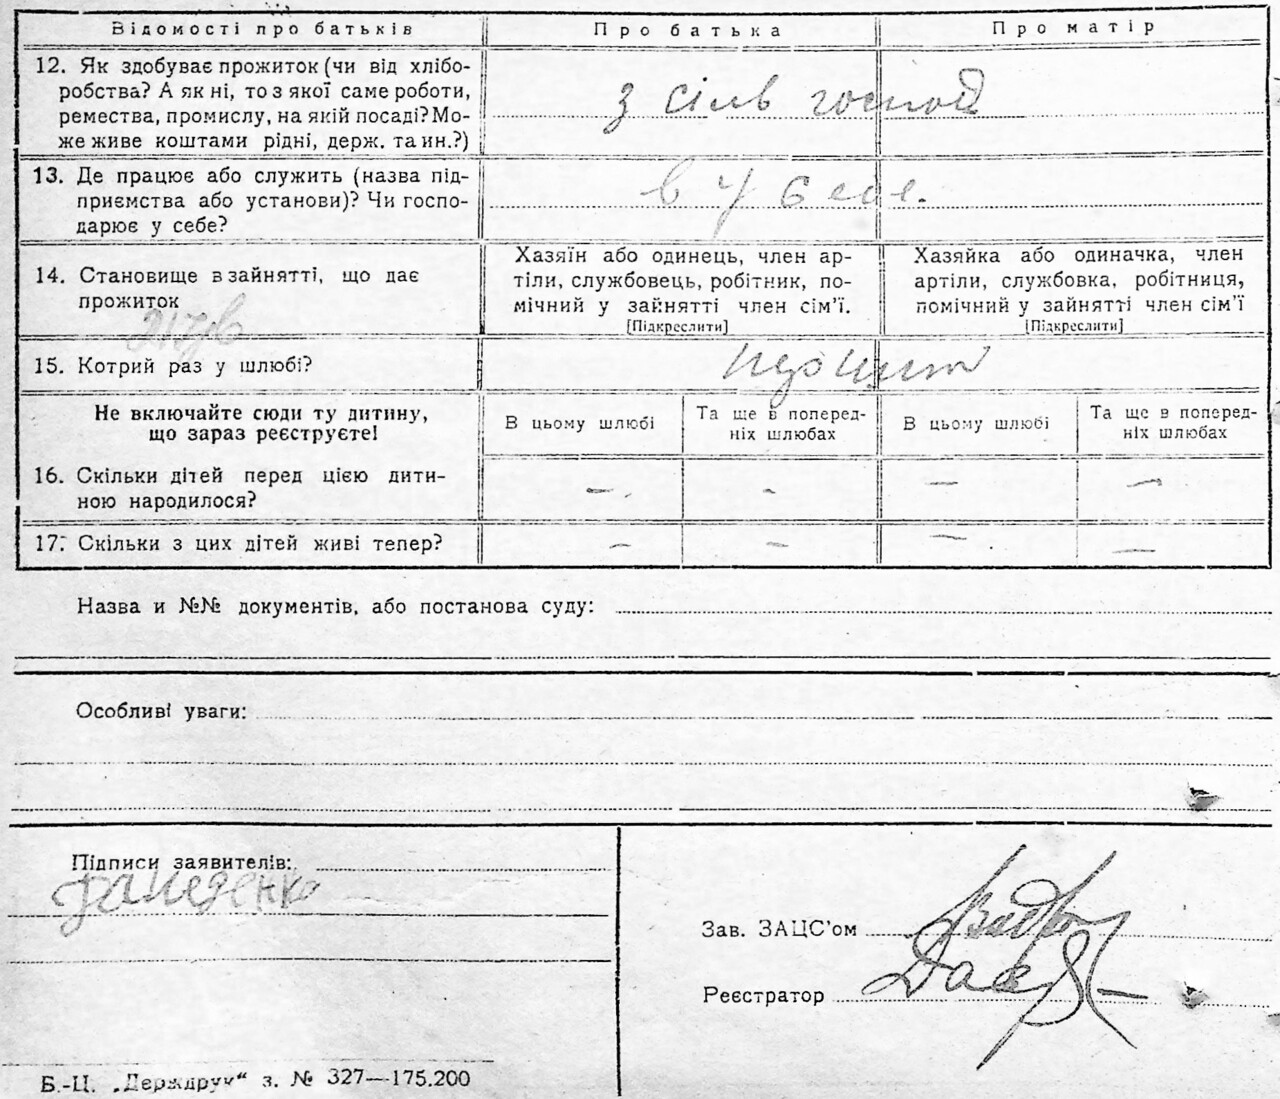 Відомості про батьків Про батька Про матір
12. Як здобуває прожиток (чи від хлібо-
робства? А як ні, то з якої саме роботи,
ремества, промислу, на якій посаді? Мо-
же живе коштами рідні, держ. та ин.?)
з сільв господ
13. Де працює або служить (назва під-
приємства або установи)? Чи госпо-
дарює у себе?
в у себе.
14. Становище в зайнятті, що дає
прожиток
Хазяїн або одинець, член ар-
тіли, службовець, робітник, по-
мічний у зайнятті член сім'ї.
[Підкреслити]
Хазяйка або одиначка, член
артіли, службовка, робітниця,
помічний у зайнятті член сім'ї
[Підкреслити]
15. Котрий раз у шлюбі?
Не включайте сюди ту дитину,
що зараз реєструєте!
В цьому шлюбі
Та ще в поперед-
ніх шлюбах
В цьому шлюбі
Та ще в поперед-
ніх шлюбах
16. Скільки дітей перед цією дити-
ною народилося?
– - — —
17. Скільки з цих дітей живі тепер?
– – — —
Назва и №№ документів, або постанова суду:
Особливі уваги:
Підписи заявителів:
Зав. ЗАЦС'ом
Реєстратор
Б.-Ц. „Держдрук“ з. № 327—175.200